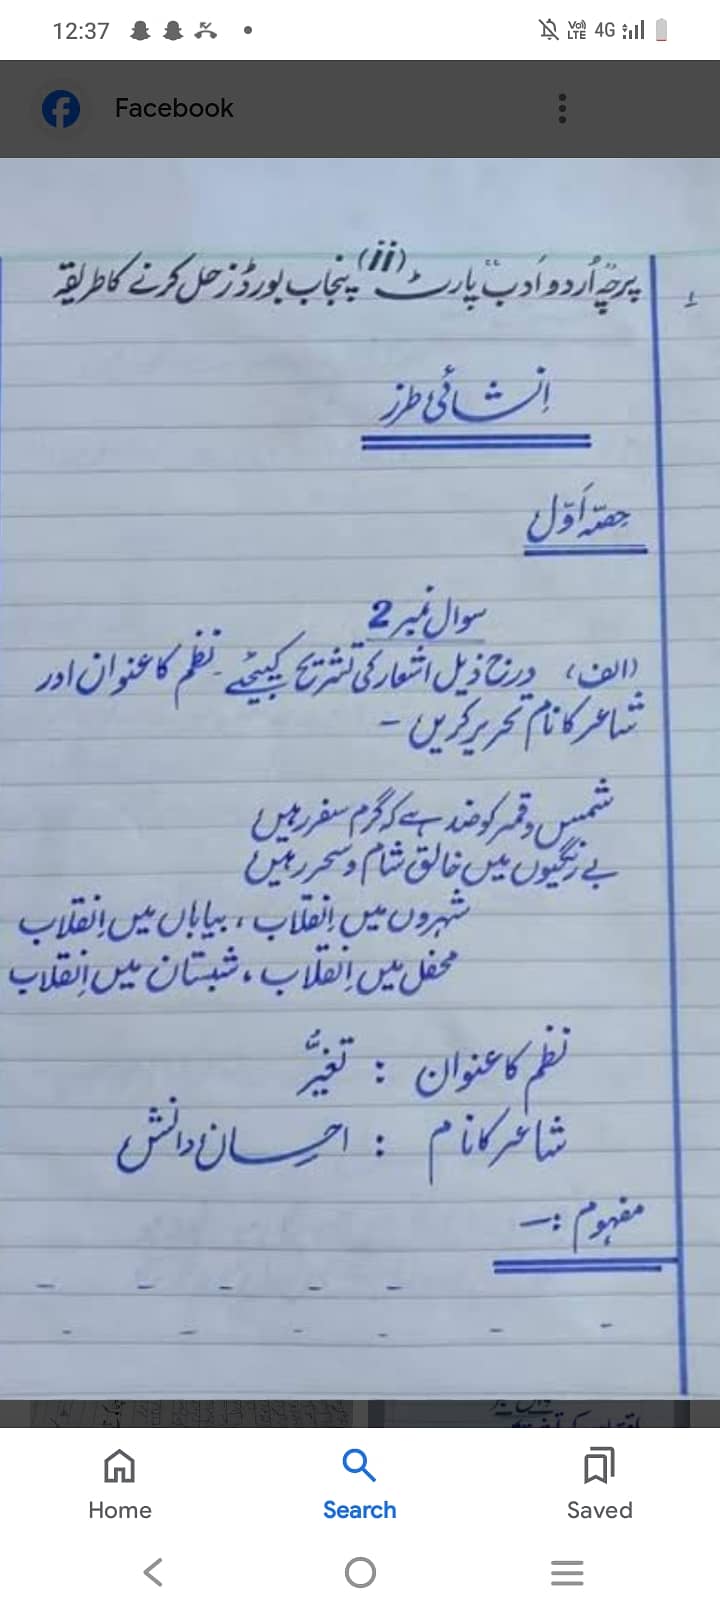 12:37
VoLTE 4G
Facebook
پرچہ اُردو اَدب پارٹ (ii) پنجاب بورڈز حل کرنے کا طریقہ
اِنشائی طرز
حصّہ اَوّل
سوال نمبر 2
(الف) درج ذیل اشعار کی تشریح کیجئے۔ نظم کا عنوان اور
شاعر کا نام تحریر کریں -
شمس و قمر کو ضد ہے کہ گرم سفر رہیں
بے رنگیوں میں خالق شام و سحر رہیں
شہروں میں اِنقلاب ، بیاباں میں اِنقلاب
محفل میں اِنقلاب ، شبستان میں اِنقلاب
نظم کا عنوان : تغیُّر
شاعر کا نام : احسان دانش
مفہوم :-
Home Search Saved